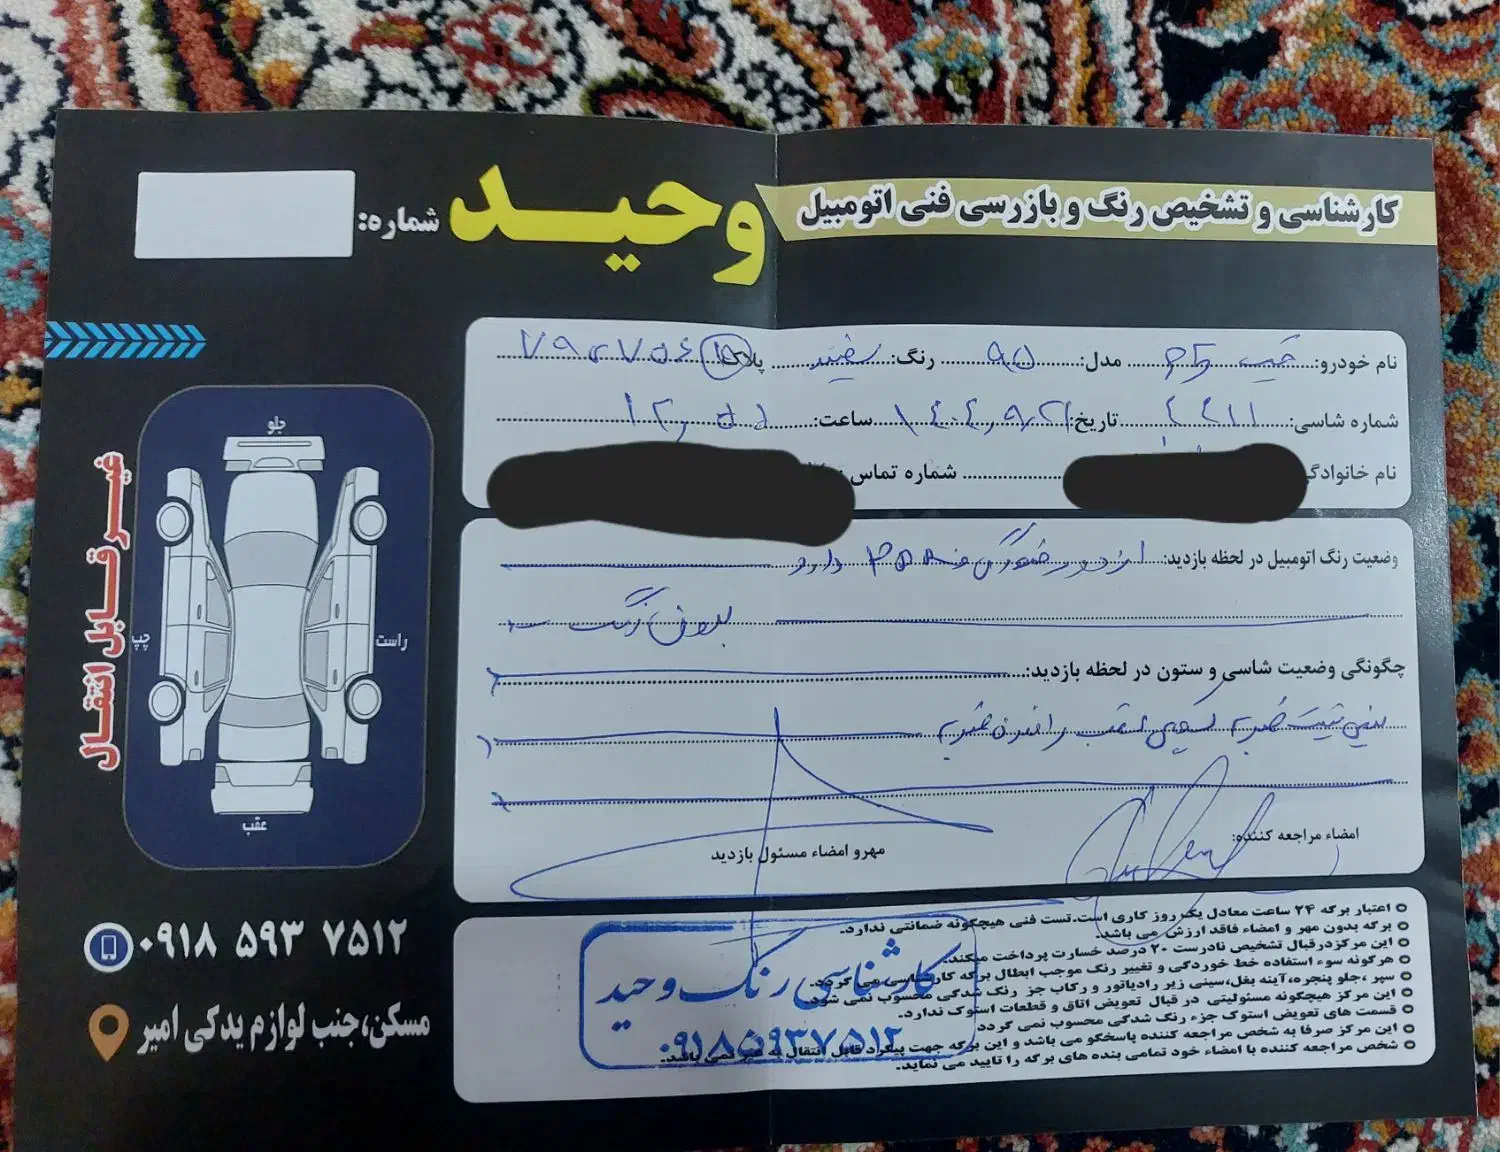 کارشناسی و تشخیص رنگ و بازرسی فنی اتومبیل
وحید
شماره:
نام خودرو: مدل: ۹۵ رنگ: سفید پلاک:
شماره شاسی: تاریخ: ساعت:
نام خانوادگی شماره تماس
وضعیت رنگ اتومبیل در لحظه بازدید: دارد
بدون رنگ
چگونگی وضعیت شاسی و ستون در لحظه بازدید:
امضاء مراجعه کننده:
مهرو امضاء مسئول بازدید
اعتبار برگه ۲۴ ساعت معادل یک روز کاری است.تست فنی هیچگونه ضمانتی ندارد.
برگه بدون مهر و امضاء فاقد ارزش می باشد.
این مرکزدرقبال تشخیص نادرست ۲۰ درصد خسارت پرداخت میکند.
هرگونه سوء استفاده خط خوردگی و تغییر رنگ موجب ابطال برگه کارشناسی می گردد.
سپر ،جلو پنجره،آینه بغل،سینی زیر رادیاتور و رکاب جز رنگ شدگی محسوب نمی شود.
این مرکز هیچگونه مسئولیتی در قبال تعویض اتاق و قطعات استوک ندارد.
قسمت های تعویض استوک جزء رنگ شدگی محسوب نمی گردد
این مرکز صرفا به شخص مراجعه کننده پاسخگو می باشد و این برگه جهت پیگرد قابل انتقال به غیر نمی باشد.
شخص مراجعه کننده با امضاء خود تمامی بنده های برگه را تایید می نماید.
کارشناسی رنگ وحید
۰۹۱۸۵۹۳۷۵۱۲
غیرقابل انتقال
جلو
چپ
راست
عقب
۰۹۱۸ ۵۹۳ ۷۵۱۲
مسکن،جنب لوازم یدکی امیر